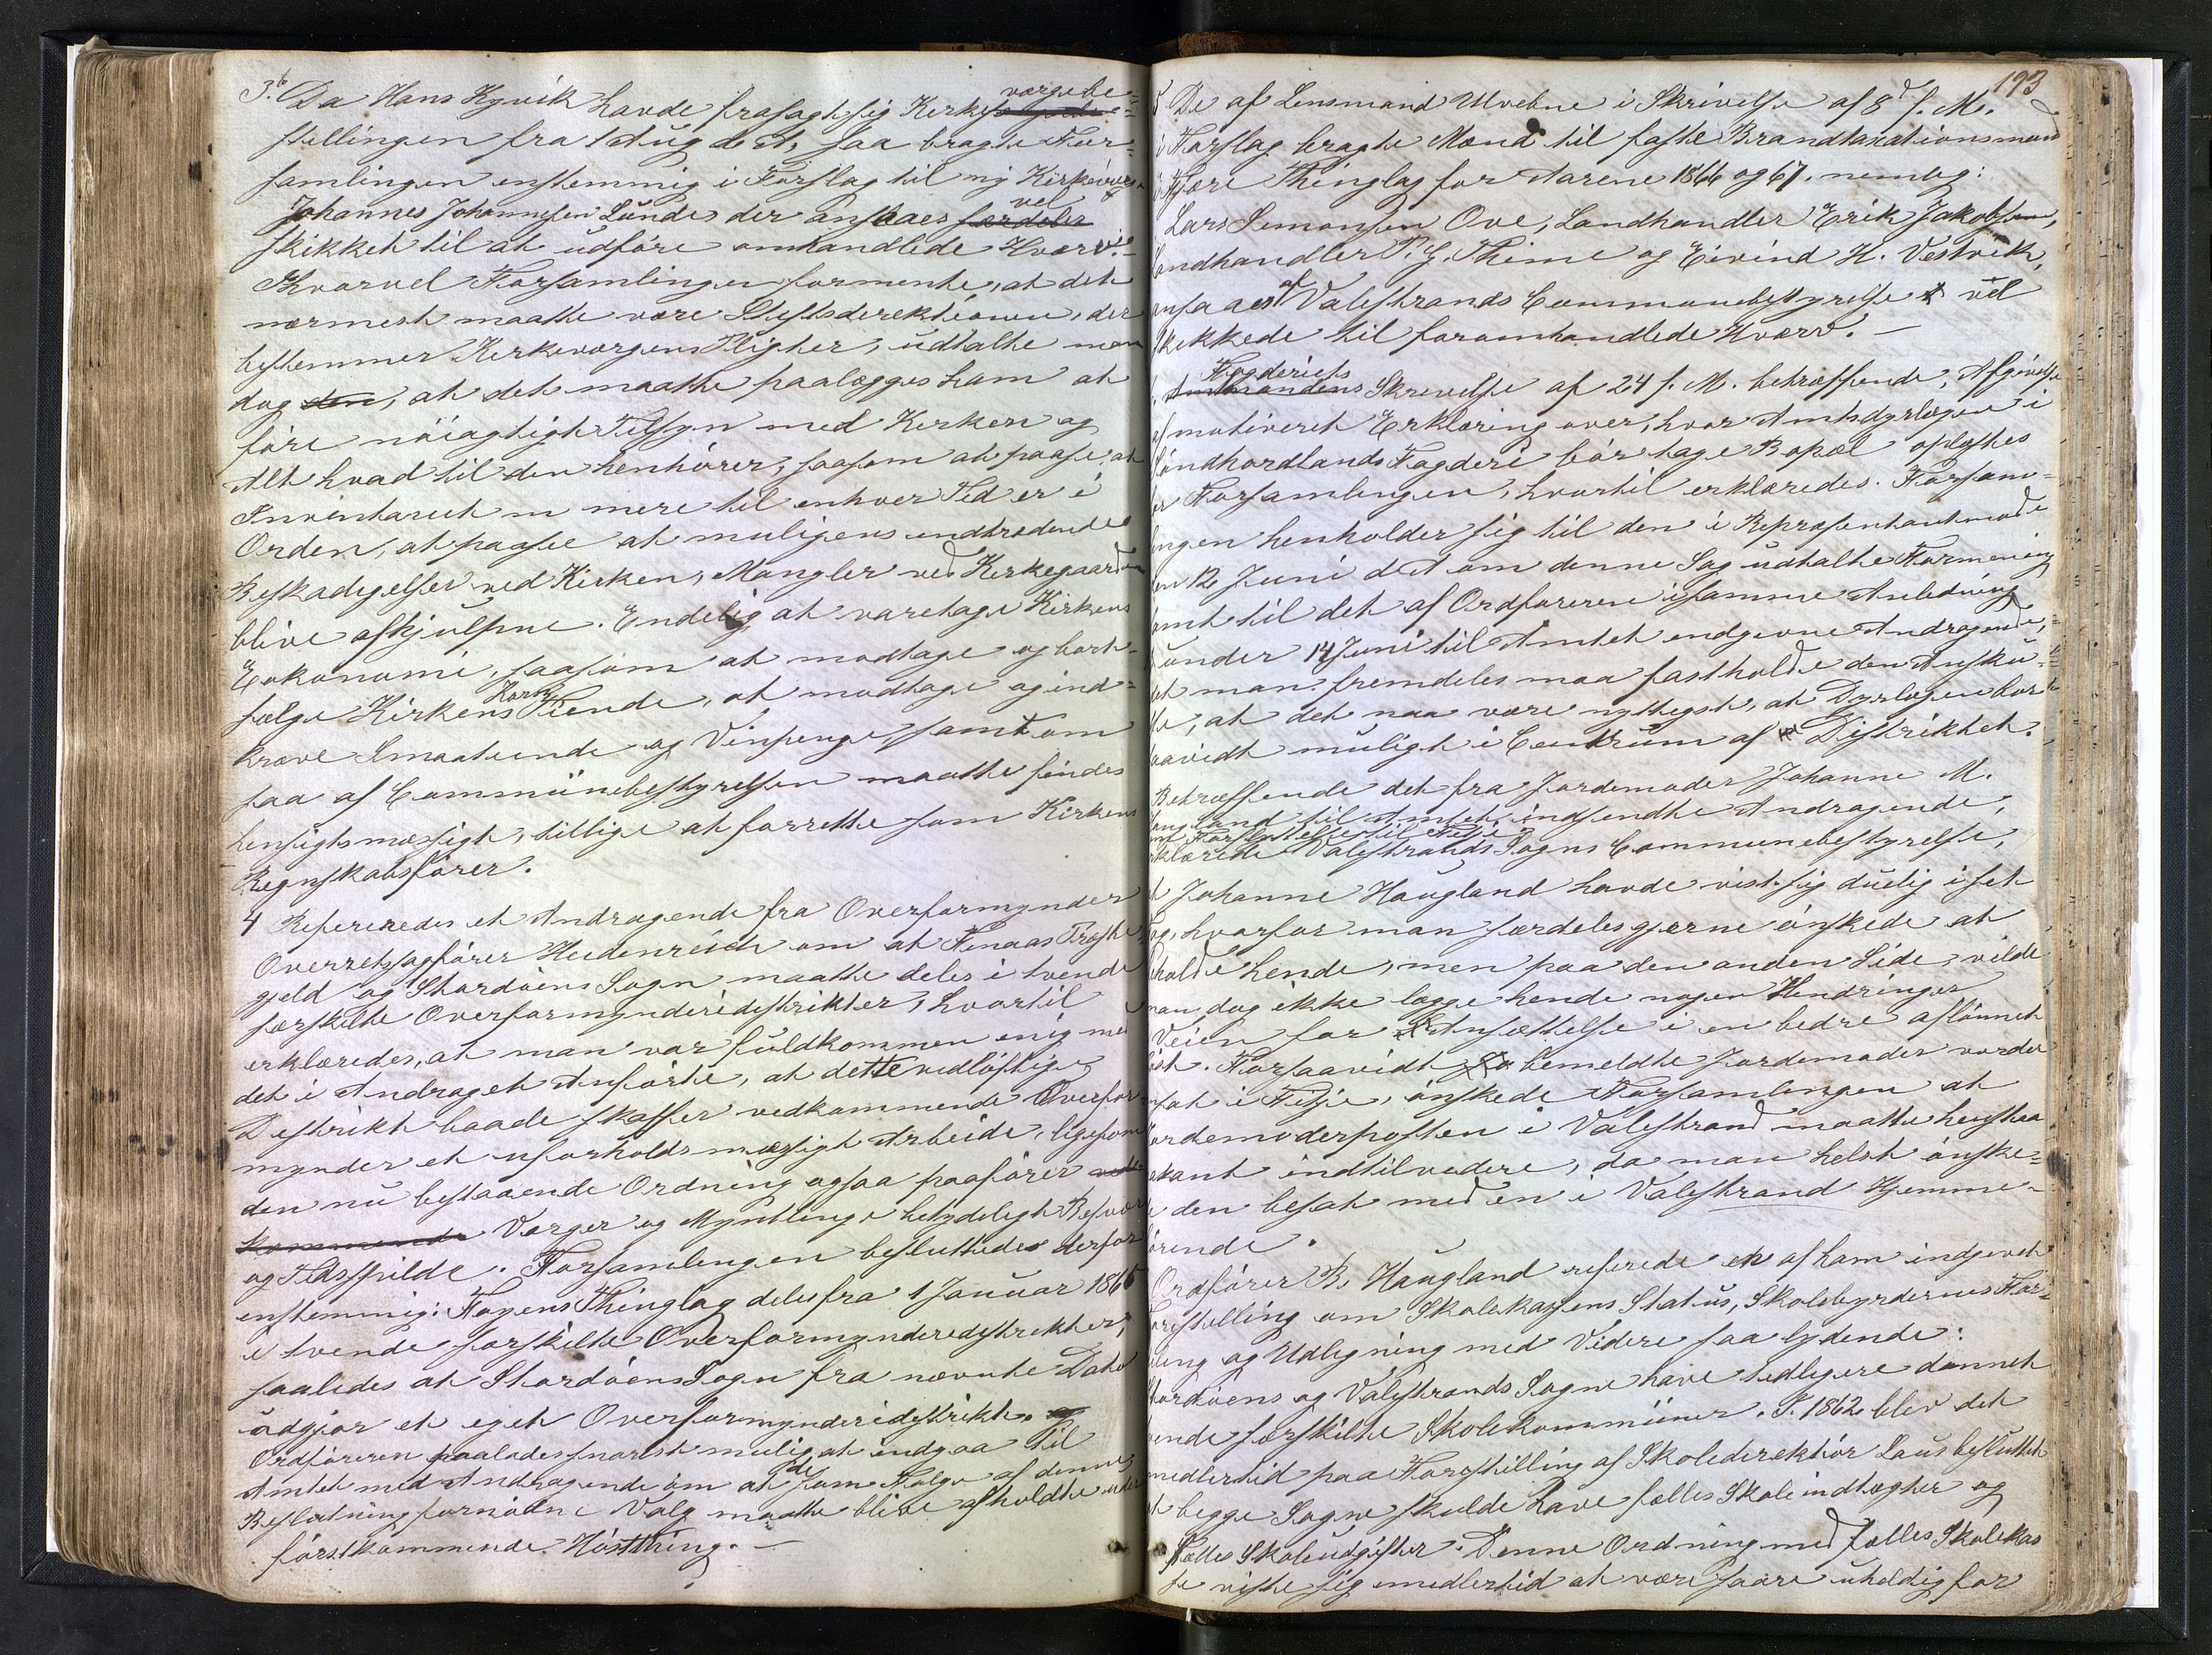 3. Da Hans Hysvik havde frasagt sig Kirkeværgebe=
stillingen fra 1 Aug d. A., saa bragte For=
samlingen enstemmig i Forslag til ny Kirkeværge
Johannes Johannesen Lunde, der ansaaes særdeles vel
skikket til at udføre omhandlede Hværv.-
Hvorvel Forsamlingen formente, at det
nærmest maatte være Stiftsdirektionen, der
bestemmer Kirkeværgens Pligter, udtalte man
dog den, at det maatte paalægges ham at
føre nøiagtigt Tilsyn med Kirken og
Alt hvad til den henhører, saasom at paase, at
Inventariet m mere til enhver Tid er i
Orden, at paasee at muligens indtrædende
Beskadigelser ved Kirken, Mangler ved Kirkegaarden
blive afhjulpne. Endelig at varetage Kirkens
Eokonomi, saasom at modtage og bort-
sælge Kirkens Korn Tiende, at modtage og ind=
kræve Smaatiende og Vinpenge, samt om
saa af Communebestyrelsen maatte findes
hensigtsmæssigt, tillige at forrette som Kirkens
Regnskabsfører.
4 Refereredes et Andragende fra Overformynder
Overretssagfører Heidenreich om at Finaas Præste
gjeld og Stordøens Sogn maatte deles i tvende
særskilte Overformynderidistrikter, hvortil
erklæredes, at man var fuldkommen enig med
det i Andraget Anførte, at dette vidløftige
Distrikt baade skaffer vedkommende Overfor
mynder et uforholdsmæssigt Arbeide, ligesom
den nu bestaaende Ordning ogsaa paafører ved
kommende Værger og Myndlinge betydeligt Besvær
og Tidsspilde. Forsamlingen besluttedes derfor
enstemmig: Fogens Thinglag deles fra 1 Januar 1866
i tvende særskilte Overformynderidistrikter,
saaledes at Stordøens Sogn fra nævnte Dato
udgjør et eget Overformynderidistrikt.
Ordføreren paalades snarest mulig at indgaa til
Amtet med Andragende om at de som Følge af denne
Beslutning fornødne Valg maatte blive afholdte under
førstkommende Høstthing.-
193
5 De af Lensmand Urebne i Skrivelse af 8d f. M.
i Forslag bragte Mænd til faste Brandtaxationsmænd
i Fjære Thinglag for Aarene 1866 og 67. nemlig:
Lars Simonsen Ove, Landhandler Erik Jakobsen,
Landhandler P. G. Thime og Eivind H. Vestvik,
ansaaes af Valestrands Communebestyrelse vel
skikkede til foromhandlede Hværv.-
Amtmandens Fogderiets Skrivelse af 24 f. M. betræffende, Afgivelse
af motiveret Erklæring over, hvor Amtsdyrlægen i
Søndhordlands Fogderi bør tage Bopæl oplystes
for Forsamlingen, hvortil erklæredes. Forsam=
lingen henholder sig til den i Repræsentantmøde
den 12 Juni d A om denne Sag udtalte Formening
samt til det af Ordføreren i samme Anledning
under 14 Juni til Amtet indgivne Andragende,
at man fremdeles maa fastholde den Ansku=
else, at det maa være nyttigst, at Dyrlægen bor
saavidt muligt i Centrum af Distriktet.
Betræffende det fra Jordemoder Johanne M.
Haugland til Amtet indsendte Andragende,
om Forflyttelse til Fitje
erklærede Valestrands Sogns Communebestyrelse,
at Johanne Haugland havde vist sig duelig i sit
Fag, hvorfor man særdeles gjerne ønskede at
beholde hende, men paa den anden Side, vilde
man dog ikke lægge hende nogen Hindringer
i Veien for Ansættelse i en bedre aflønnet
Post. Forsaavidt bemeldte Jordemoder vorder
ansat i Fitje, ønskede Forsamlingen at
Jordemoderposten i Valestrand maatte henstaa
vakant indtil videre, da man helst ønske=
de den besat med en i Valestrand Hjemme-
hørende.
Ordfører B. Haugland referede en af ham indgivet
Forestilling om Skolekassens Status, Skolebyrdernes For=
deling og Udligning med Videre saa lydende:
Stordøens og Valestrands Sogne have tidligere dannet
tvende særskilte Skolekommuner. I 1862 blev det
imedlertid paa Forestilling af Skoledirektør Laus besluttet
at begge Sogne skulde have fælles Skoleindtægter og
fælles Skoleudgifter. Denne Ordning med fælles Skolekas
se viste sig imedlertid at være saare uheldig for